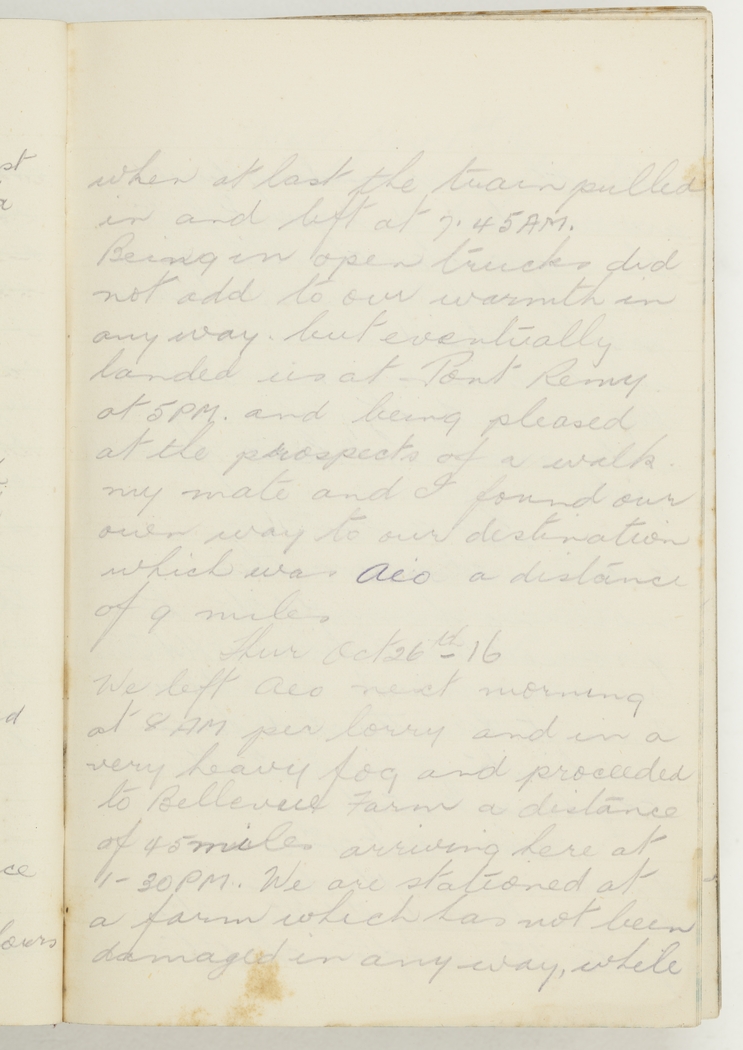 when at last the train pulled
in and left at 7.45AM.
Being in open trucks did
not add to our warmth in
any way. but eventually
landed us at Pont Remy
at 5PM. and being pleased
at the prospects of a walk.
my mate and I found our
own way to our destination
which was Aeo a distance
of 9 miles
Thur Oct 26th-16
We left Aeo next morning
at 8 AM per lorry and in a
very heavy fog and proceeded
to Bellevue Farm a distance
of 45 miles arriving here at
1-30PM. We are stationed at
a farm which has not been
damaged in any way, while
st
d
ce
lours